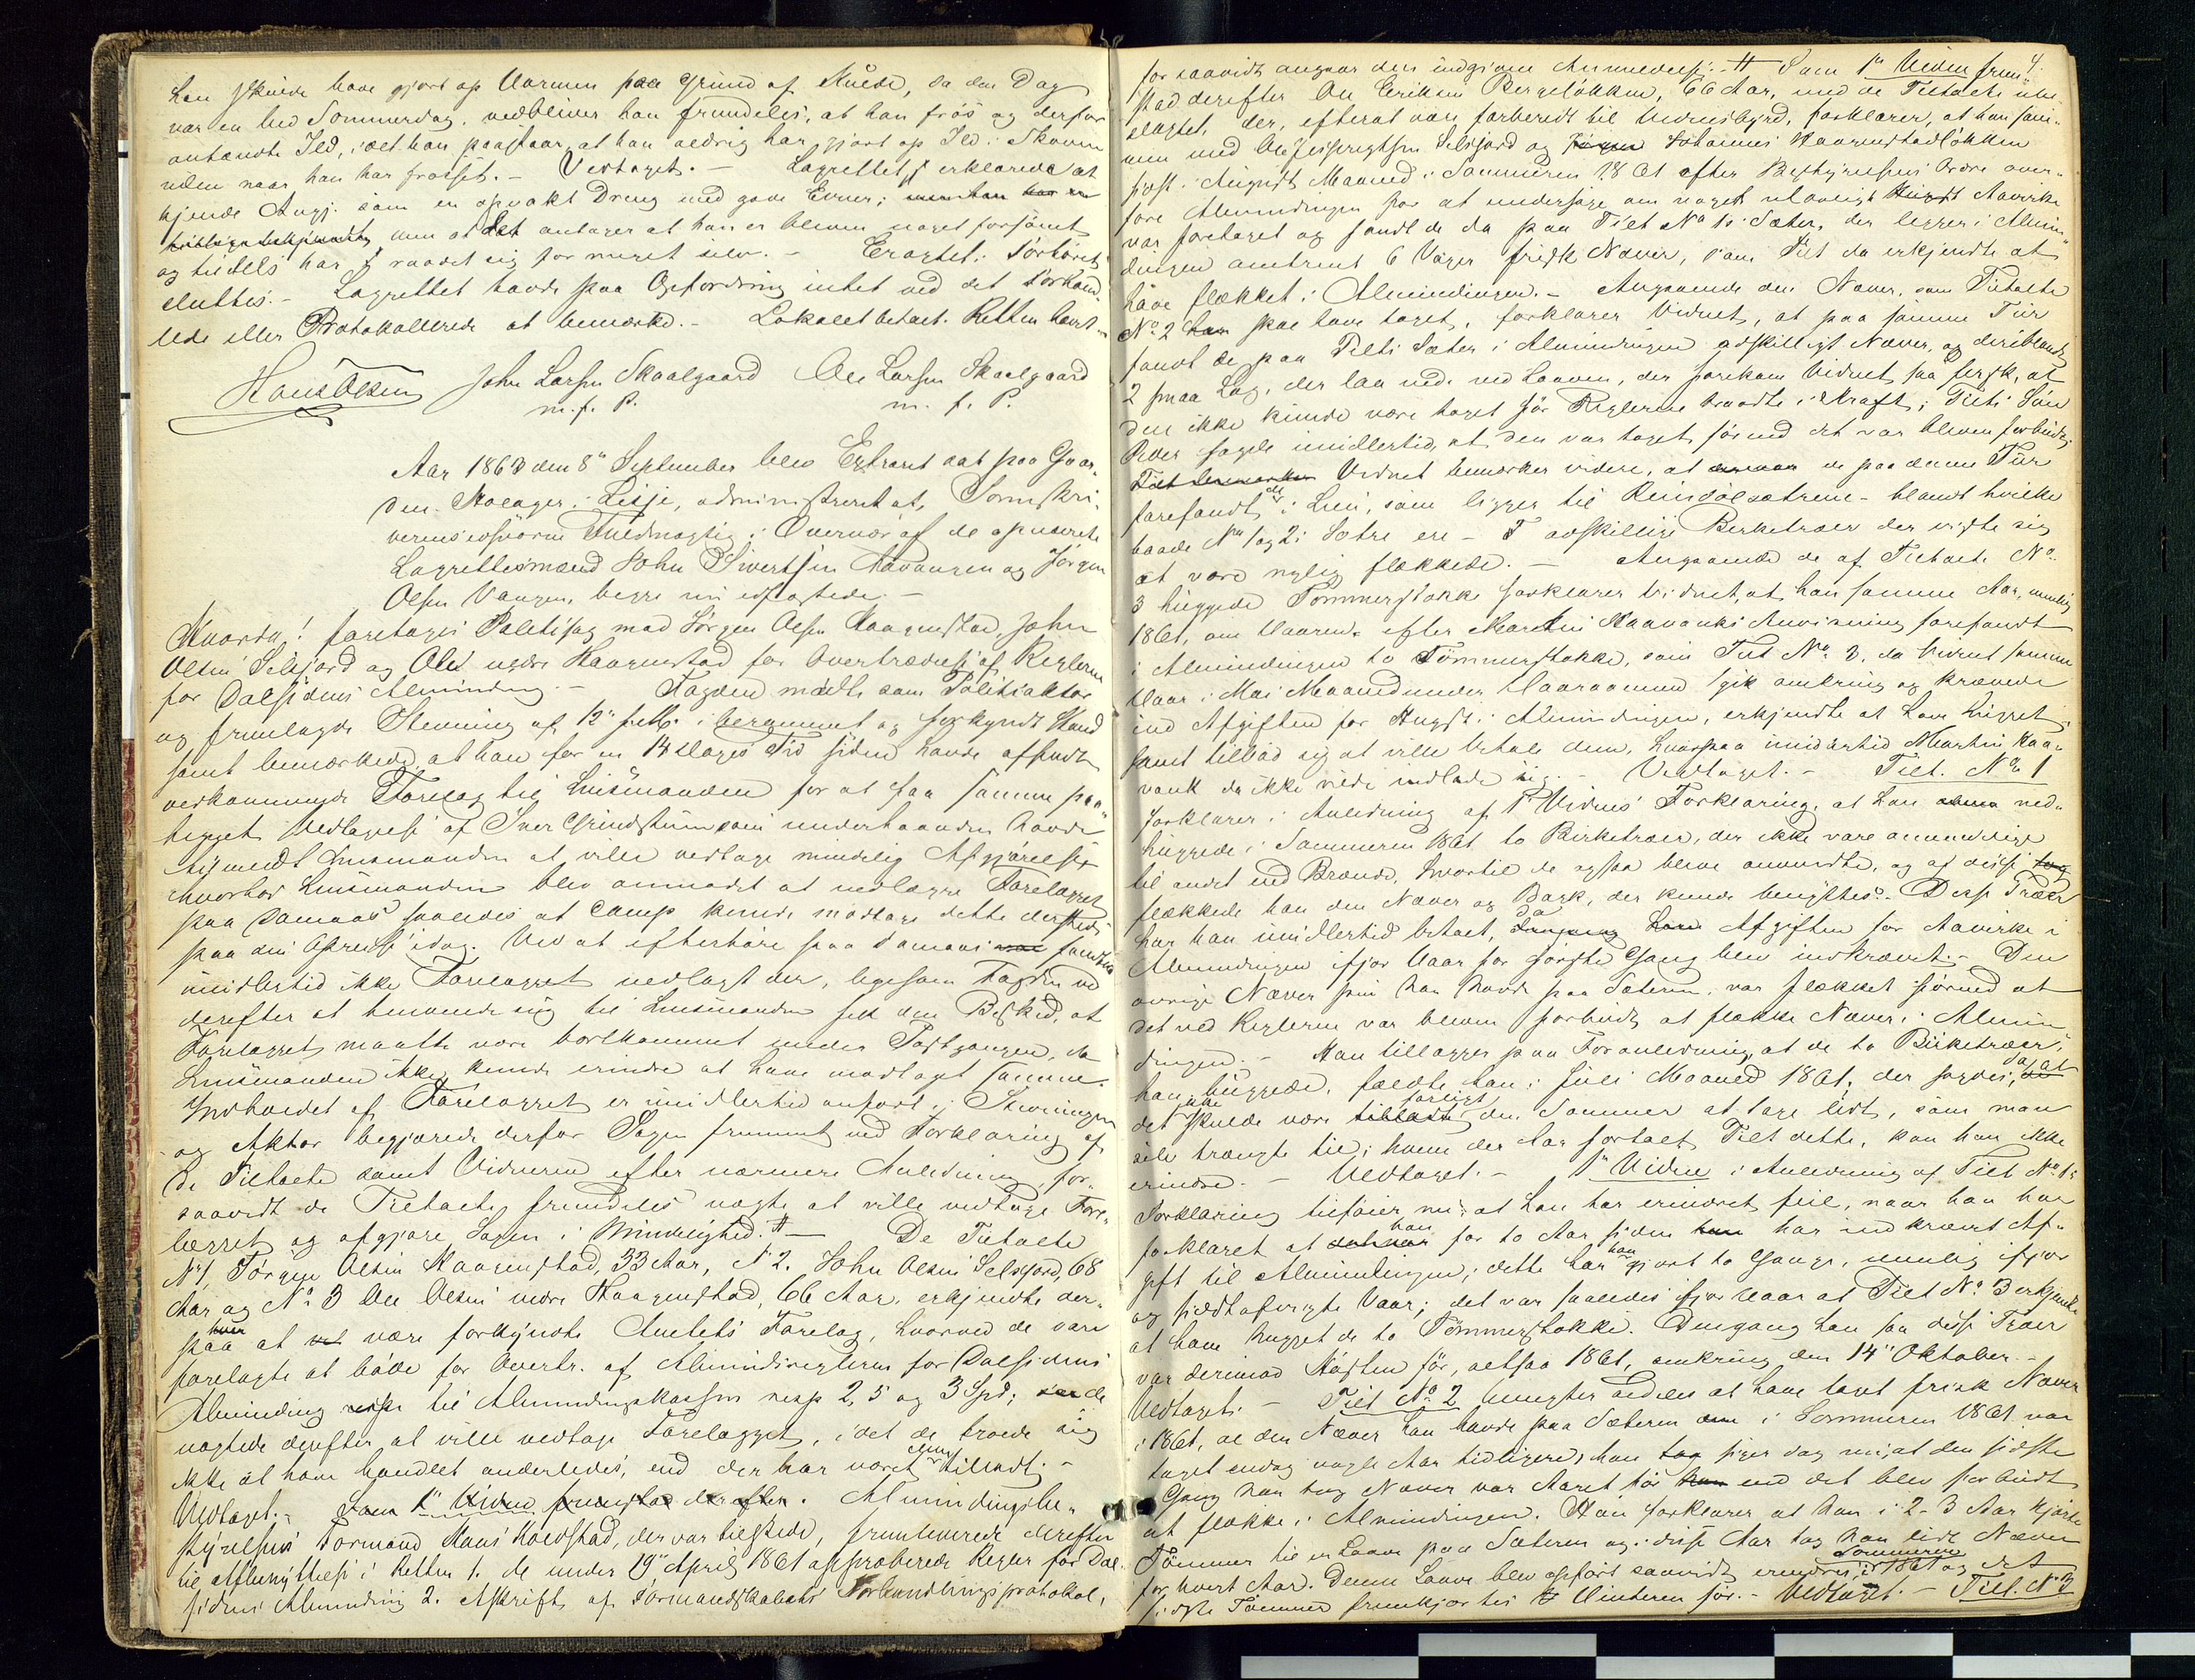 han skulde have gjort op Varmen paa Grund af Kulde, da den Dag
var en hed Sommerdag, vedbliver han fremdeles, at han frøs og derfor
antændte Ild, idet han paastaar, at han aldrig har gjort op Ild i Skoven
uden naar han har frosset. - Vedtaget. - Lagrettet erklærede at
kjende Angj. som en opvakt Dreng med gode Evner; men han har en
men at det antages at han er bleven noget forsømt
og tildels har raadet sig for meget selv. - Eragtet: Forhøret
sluttes. - Lagrettet havde paa Opfordring intet ved det Forhand-
lede eller Protokollerede at bemærke. - Lokalet betalt. Retten hævet.
Hans Olsen John Larsen Skaalgaard Ole Larsen Skaalgaard
m. f. P. m. f. P.
Aar 1863 den 8de September blev Extraret sat paa Gaar-
den Stolager i Lesje, administreret af Sorenskri-
verens edsvorne Fuldmægtig i Overvær af de opnævnte
Lagrettesmænd John Sivertsen Aavangen og Jørgen
Olsen Vangen, begge nu edfæstede. -
Hvorda! foretages Politisag mod Jørgen Olsen Haagenstad, John
Olsen Selsjord og Ole nedre Haagenstad for Overtrædelse af Reglerne
for Dalsidens Alminding. - Fogden mødte som Politiaktor
og fremlagde Stevning af 12te fulte i berammet og forkyndt Stand
samt bemærkede, at han for en 14 Dages Tid siden havde afsendt
vedkommende Forelæg til Lensmanden for at faa samme paa-
tegget Vedtagelse af Iver Grindstuen som underhaanden havde
tilmeldt Lensmanden at ville vedtage mindelig Afgjørelse
hvorhos Lensmanden blev anmodet at nedlægge Forelægget
paa Domaas saaledes at Comp kunde modtage dette dersteds
paa sin Opreise idag. Ved at efterhøre paa Domaas fandtes
imidlertid ikke Forelægget nedlagt der, ligesom Fogden ved
derefter at henvende sig til Lensmanden fik den Besked, at
Forelægget maatte være bortkommet under Postgangen, da
Lensmanden ikke kunde erindre at have modtaget samme.
Indholdet af Forelægget er imidlertid anført i Stevningen
og Aktor begjærede derfor Sagen fremmet ved Forklaring af
de Tiltalte samt Vidnerne efter nærmere Anledning, for-
saavidt de Tiltalte fremdeles nægte at ville vedtage Fore-
lægget og afgjøre Sagen i Mindelighed. # - De Tiltalte
No 1, Jørgen Olsen Haagenstad, 33 Aar, No 2. John Olsen Selsjord, 68
Aar og No 3 Ole Olsen nedre Haagenstad, 66 Aar, erkjendte der-
paa at være forkyndte Amtets Forelæg, hvorved de vare
forelagte at bøde for Overtr. af Almindingreglerne for Dalsidens
Alminding til Almindingskassen resp 2, 5 og 3 Spd; de
nægtede derefter at ville vedtage Forelægget, idet de troede sig
ikke at have handlet anderledes, end der har været dem tilladt. -
Vedtaget. - Som 1ste Vidne fremstod derefter. Almindingsbe-
styrelsens Formand Hans Koldstad, der var tilstede, fremleverede derefter
til Afbenyttelse i Retten 1. de under 19de April 1861 approberede Regler for Dal-
sidens Alminding 2. Afskrift af Formandskabets Forhandlingsprotokol,
4.
for saavidt angaar den indgivne Anmeldelse. # Som 1ste Vidne frem-
stod derefter Ole Eriksen Bergeløkken, 66 Aar, med de Tiltalte ube-
slægtet, der, efterat være forberedt til Vidnesbyrd, forklarer, at han sam-
men med Ole Jespregtsen Selsjord og Johannes Haagenstadløkken
sidst i August Maaned i Sommeren 1861 efter Bestyrelsens Ordre over-
fore Almindingen for at undersøge om noget ulovligt Aavirke
var foretaget og fandt de da paa Tilt No 1s Sæter, der ligger i Almin-
dingen omtrent 6 Voger frisk Næver, som Tilt da erkjendte at
have flækket i Almindingen. - Angaaende den Næver, som Tiltalte
No 2 skal have taget, forklarer Vidnet, at paa samme Tur
fandt de paa Tilts Sæter i Almindingen adskilligt Næver, og deriblandt
2 smaa Lag, der laa nede ved Laaven, der forekom Vidnet saa fersk, at
den ikke kunde være taget før Reglerne traadte i Kraft; Tilts Søn
Peder sagde imidlertid, at den var taget, førend det var bleven forbudt;
Vidnet bemærker videre, at de paa denne Tur
forefandt i Lien, som ligger til Reindølsætrene - blandt hvilke
baade No 1 og 2s Sætre ere - adskillige Birketræer der viste sig
at være nylig flækkede. - Angaaende de af Tiltalte No
3 huggede Tømmerstokke forklarer Vidnet, at han samme Aar, nemlig
1861, om Vaaren efter Martin Kaavanks Anvisning forefandt
i Almindingen to Tømmerstokke, som Tilt No 3, da Vidnet samme
Vaar i Mai Maaned under Vaaraanned gik omkring og krævede
ind Afgiften for Hugst i Almindingen, erkjendte at have hugget
samt tilbød sig at ville betale dem, hvorpaa imidlertid Martin Kaa-
vank da ikke vilde indlade sig. - Vedtaget. - Tilt. No 1
forklarer i Anledning af 1ste Vidnes Forklaring, at han ned-
huggede i Sommeren 1861 to Birketræer, der ikke vare anvendelige
til andet end Brænde, hvortil de ogsaa bleve anvendte, og af disse
flækkede han den Næver og Bark, der kunde benyttes. - Disse Træer
har han imidlertid betalt, da Afgiften for Aavirke i
Almindingen ifjor Vaar for første Gang blev indkrævet. - Den
øvrige Næver som han havde paa Sæteren, var flækket førend at
det ved Reglerne var bleven forbudt at flække Næver i Almin-
dingen. - Han tillægger paa Foranledning, at de to Birketræer,
han huggede, fældte han i Juli Maaned 1861, der sagdes da at
det ikke skulde være farligt den Sommer at tage lidt, som man
selv trængte til; hvem der har fortalt Tilt dette, kan han ikke
erindre. - Vedtaget. - 1ste Vidne i Anledning af Tilt No 1s
Forklaring tilføier nu, at han har erindret feil, naar han har
forklaret at han for to Aar siden har indkrævet Af-
gift til Almindingen; dette har han gjort to Gange, nemlig ifjor
og sidstafvigte Vaar; det var saaledes ifjor Vaar at Tilt No 3 erkjendte
at have hugget de to Tømmerstokke. Dengang han saa disse Træer
var derimod Høsten før, altsaa 1861, omkring den 14de Oktober. -
Vedtaget. - Tilt No 2 benegter aldeles at have tavt frisk Næver
i 1861, al den Næver han havde paa Sæteren i Sommeren 1861 var
taget endog nogle Aar tidligere; han siger dog nu, at den sidste
Gang han tog Næver var Aaret før end det blev forbudt
at flække i Almindingen. Han forklarer at han i 2-3 Aar kjørte
Tømmer til en Laave paa Sæteren og i disse Aar tog han lidt Næver
for hvert Aar. Denne Laave blev opført saavidt erindres Sommeren i 1861 og det
sidste Tømmer fremkjørtes Vinteren før. - Vedtaget. - Tilt. No 3